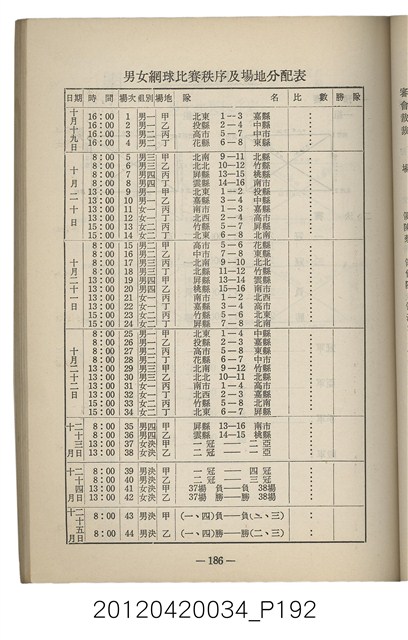 男女網球比賽秩序及場地分配表
日期 時間 場次 組別 場地 隊名 比數 勝隊
十月十九日
16:00 1 男一 甲 北東 1—3 嘉縣 :
16:00 2 男一 乙 投縣 2—4 中縣 :
16:00 3 男二 丙 高市 5—7 中市 :
16:00 4 男二 丁 花縣 6—8 東縣 :
十月二十日
8:00 5 男三 甲 北南 9—11 北縣 :
8:00 6 男三 乙 北縣 10—12 竹縣 :
8:00 7 男四 丙 屏縣 13—15 桃縣 :
8:00 8 男四 丁 雲縣 14—16 南市 :
9:00 9 男一 甲 北東 1—2 投縣 :
9:00 10 男一 乙 嘉縣 3—4 中縣 :
13:00 11 女一 丙 南市 1—3 嘉縣 :
13:00 12 女一 丁 北西 2—4 高市 :
15:00 13 女二 乙 竹縣 5—7 屏縣 :
15:00 14 女二 丁 北東 6—8 北南 :
十月二十一日
8:00 15 男二 甲 高市 5—6 花縣 :
8:00 16 男二 乙 中市 7—8 東縣 :
8:00 17 男三 丙 北南 9—10 北北 :
8:00 18 男三 丁 北縣 11—12 竹縣 :
13:00 19 男四 甲 屏縣 13—14 雲縣 :
13:00 20 男四 乙 桃縣 15—16 南市 :
13:00 21 女一 丙 南市 1—2 北西 :
13:00 22 女一 丁 嘉縣 3—4 高市 :
15:00 23 女二 丙 竹縣 5—6 北東 :
15:00 24 女二 丁 屏縣 7—8 北南 :
十月二十二日
8:00 25 男一 甲 北東 1—4 中縣 :
8:00 26 男一 乙 投縣 2—3 嘉縣 :
8:00 27 男二 丙 高市 5—8 東縣 :
8:00 28 男二 丁 花縣 6—7 中市 :
13:00 29 男三 甲 北南 9—12 竹縣 :
13:00 30 男三 乙 北北 10—11 北縣 :
13:00 31 女一 丙 南市 1—4 高市 :
13:00 32 女一 丁 北西 2—3 嘉縣 :
15:00 33 女二 丙 竹縣 5—8 北南 :
15:00 34 女二 丁 北東 6—7 屏縣 :
十月二十三日
8:00 35 男四 甲 屏縣 13—16 南市 :
8:00 36 男四 乙 雲縣 14—15 桃縣 :
13:00 37 女決 甲 一冠——二亞 :
13:00 38 女決 乙 二冠——一亞 :
十月二十四日
8:00 39 男決 甲 一冠——四冠 :
8:00 40 男決 乙 二冠——三冠 :
13:00 41 女決 甲 37場 負——負 38場 :
13:00 42 女決 乙 37場 勝——勝 38場 :
十月二十五日
8:00 43 男決 甲 (一、四)負—負(二、三) :
8:00 44 男決 乙 (一、四)勝—勝(二、三) :
— 186 —
20120420034_P192